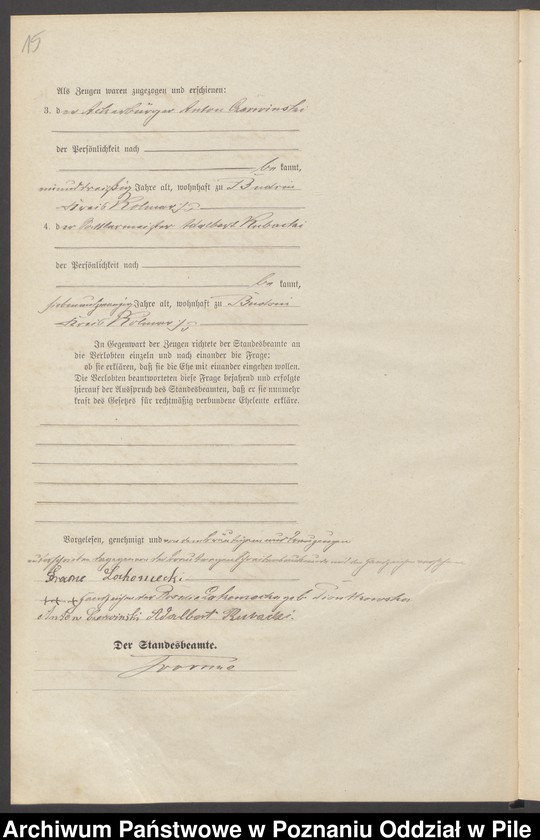 15
Als Zeugen waren zugezogen und erschienen:
3. der Ackerbürger Anton
der Persönlichkeit nach
bekannt,
einunddreißig Jahre alt, wohnhaft zu Budsin
Kreis Kolmar i/P
4. der Sattlermeister Adalbert Kubacki
der Persönlichkeit nach
bekannt,
siebenundzwanzig Jahre alt, wohnhaft zu Budsin
Kreis Kolmar i/P
In Gegenwart der Zeugen richtete der Standesbeamte an
die Verlobten einzeln und nach einander die Frage:
ob sie erklären, daß sie die Ehe mit einander eingehen wollen.
Die Verlobten beantworteten diese Frage bejahend und erfolgte
hierauf der Ausspruch des Standesbeamten, daß er sie nunmehr
kraft des Gesetzes für rechtmäßig verbundene Eheleute erkläre.
Vorgelesen, genehmigt und von dem Bräutigam und Trauzeugen
unterschrieben dagegen von der Braut wegen mit den Handzeichen versehen
Franc
+++ Handzeichen der geb.
Anton Adalbert Kubacki.
Der Standesbeamte.